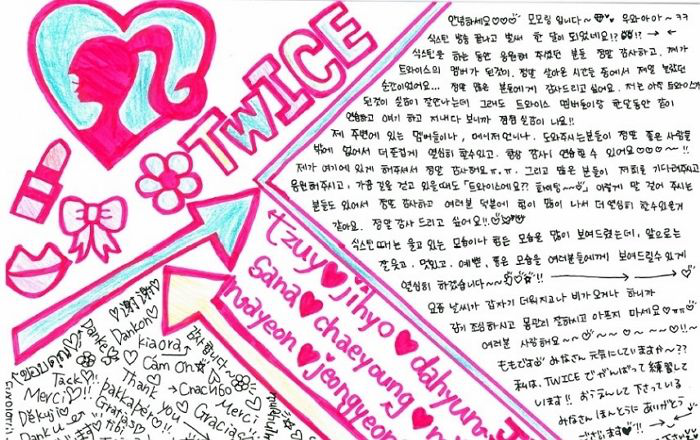 TWICE
안녕하세요♡♡♡ 모모링 입니다~ 우와아아~ ㅋㅋ
식스틴 방송 끝나고 벌써 한 달이 되었네요!? !?
식스틴을 하는 동안 응원해 주셨던 분들 정말 감사하고, 제가
트와이스의 멤버가 된것이, 정말 살아온 시간들 중에서 제일 놀랐던
순간이었네요... 정말 많은 분들에게 감사드리고 싶어요. 저는 아직 트와이스가
된것이 실감이 잘안나는데 그래도 트와이스 멤버들이랑 한달동안 같이
연습하고 얘기 하고 지내다 보니까 점점 실감이 나요!!
제 주변에 있는 멤버들이나, 매니저언니나, 도와주시는분들이 정말 좋은 사람들
밖에 없어서 더 즐겁게 열심히 할수있고, 항상 감사히 연습할 수 있어요♡♡♡~!!
제가 여기에 있게 해주셔서 정말 감사해요 ㅠ.ㅠ. 그리고 많은 분들이 저희를 기다려주시고
응원해주시고, 가끔 길을 걷고 있을때도 "트와이스예요?? 화이팅~~" 이렇게 말 걸어 주시는
분들도 있어서 정말 감사하고 여러분 덕분에 힘이 많이 나서 더 열심히 할수있을거
같아요. 정말 감사 드리고 싶어요!!
식스틴 때에는 울고 있는 모습이나 힘든 모습을 많이 보여드렸는데, 앞으로는
잘웃고, 멋있고, 예쁜, 좋은 모습을 여러분들에게 보여드릴수 있게
열심히 하겠습니다~~♡!!
요즘 날씨가 갑자기 더워지거나 비가 오거나 하니까
감기 조심하시고 몸관리 잘하시고 아프지 마세요♡
여러분 사랑해요~♡~~~♡~~♡~!!♡!
ももです みなさん 元気にしていますか~??
私は、TWICEで がんばって 練習して
います!! おうえんして下さっている
みなさん ほんとうに ありがとう
tzuyu♥jihyo♥dahyun
sana♥chaeyoung♥
nayeon♥jeongyeon
谢谢
谢谢
ขอบคุณ
Danke
Dankon
kiaora
감사합니다~
Tack
Merci!!
Děkuji
Dank u
Cảm ơn
Thank you
pakkapér!!
Gratias
Спасибо
Merci
Gracias